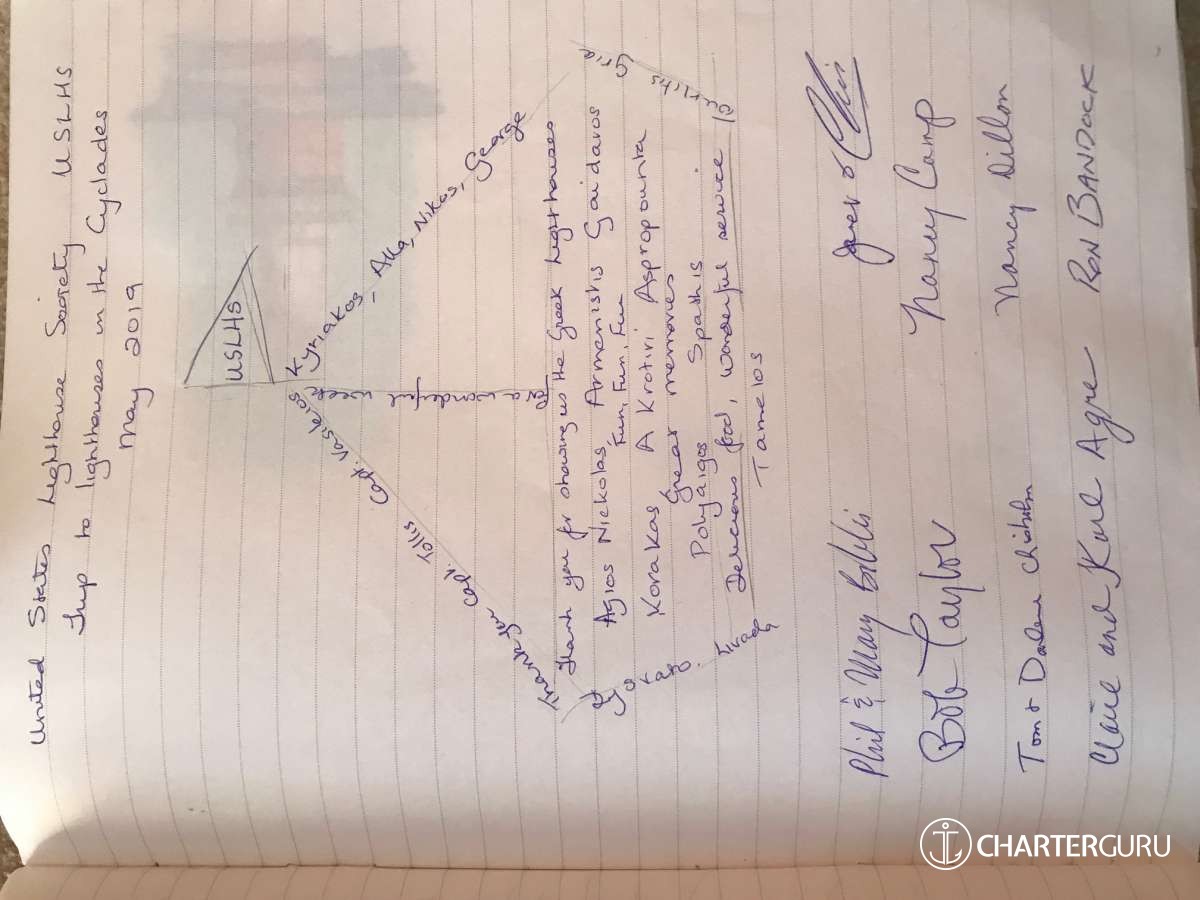 United States Lighthouse Society USLHS
Trip to lighthouses in the Cyclades
May 2019
USLHS
Thank you Capt. Tollis Capt. Vasileros
Kyriakos - Alla, Nikos, George
for a wonderful week
Thank you for showing us the Greek lighthouses
Agios Nickolas, Armenistis Gaidaros
Fun, Fun, Fun
Korakas A Krotiri Aspropounta
Great memories
Polyaigos Spathis
Delicious food, wonderful service
Tamelos
Phil & Mary
Bob Taylor Nancy Camp
Tom & Darlene Chisholm Nancy Dillon
Claire and Karl Agre RON BANDOCK
CHARTERGURU